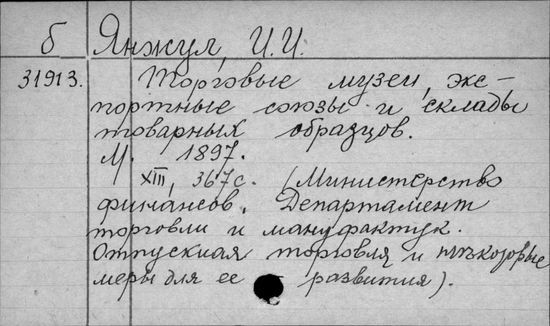 б Янжул, И.И.
31913. Торговые музеи, экс-
портные союзы и склады
товарных образцов.
М. 1897.
XIII, 367с. (Министерство
финансов. Департамент
торговли и мануфактур.
Отпускная торговля и
меры для ее развития).